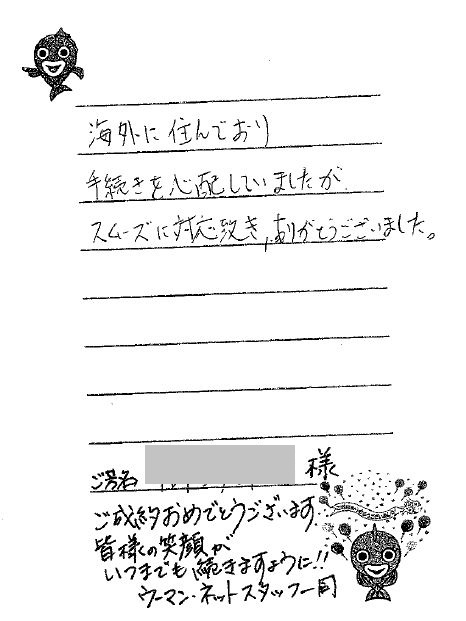 海外に住んでおり
手続きを心配していましたが
スムーズに対応致き,ありがとうございました。
ご芳名 様
ご成約おめでとうございます
皆様の笑顔が
いつまでも続きますように!!
ウーマン・ネットスタッフ一同